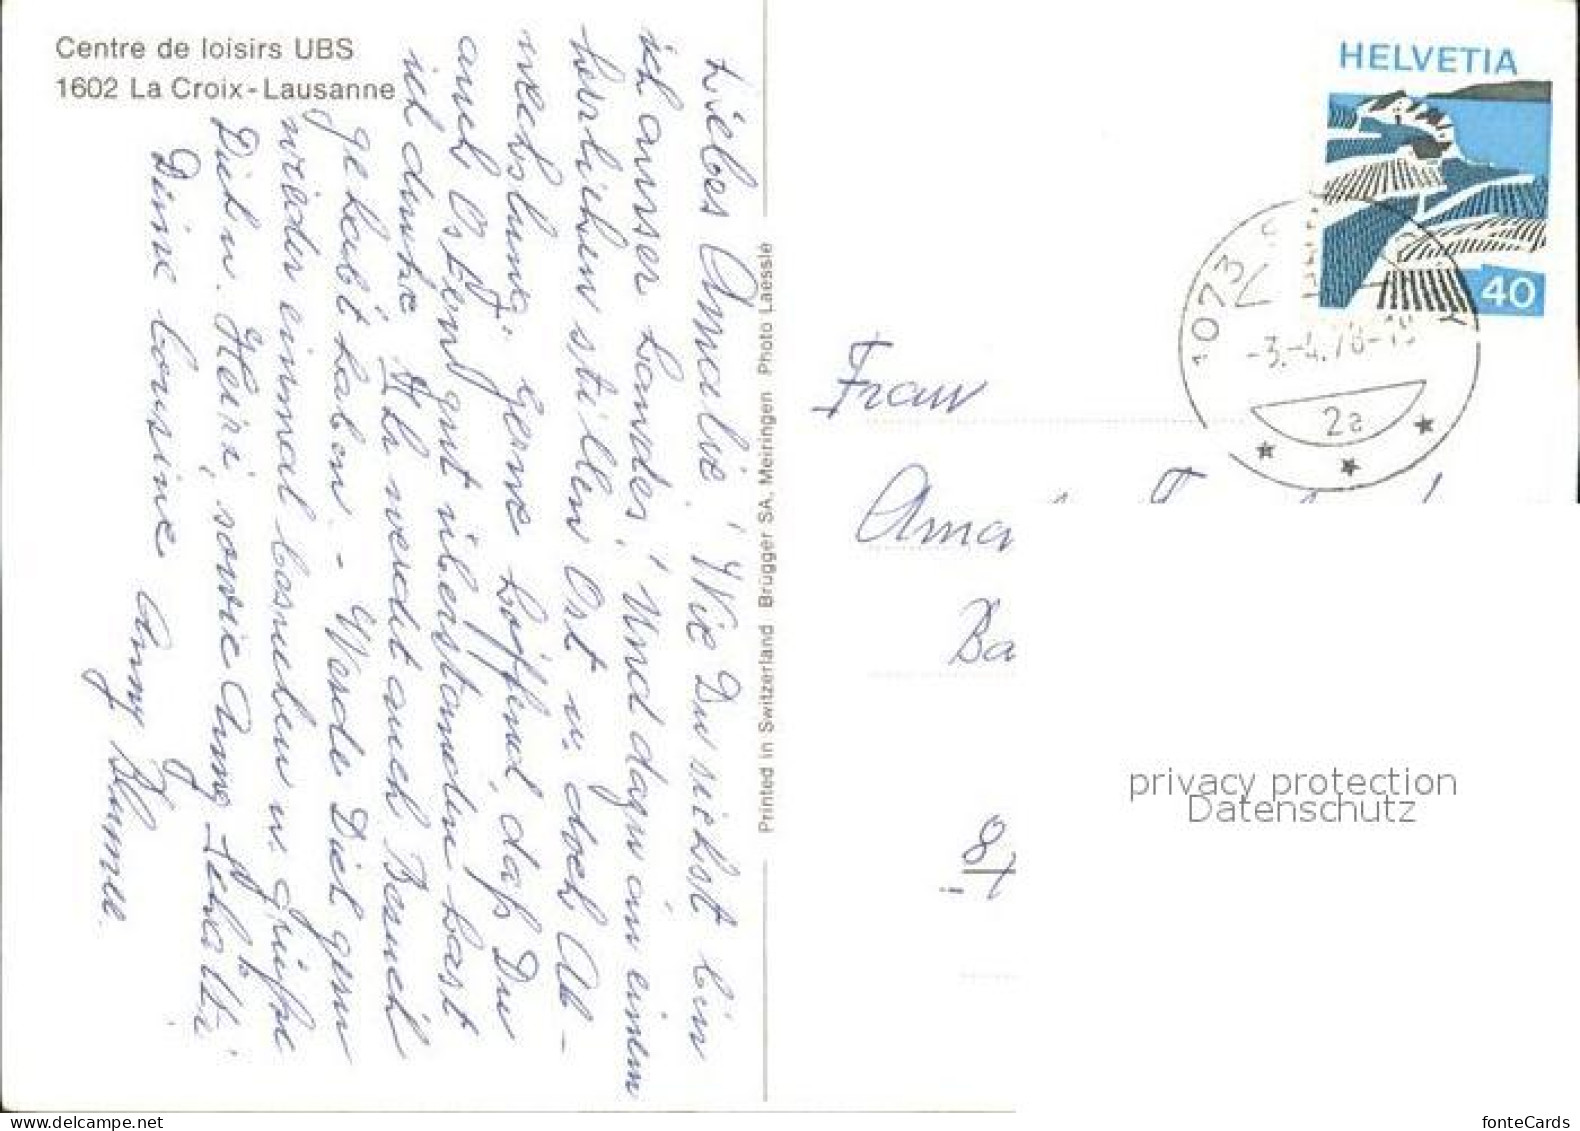 Centre de loisirs UBS
1602 La Croix-Lausanne
Liebes Amalie! Wie Du siehst bin
ich ausser Landes! Und dazu in einem
herrlichen stillen Ort u. doch Ab-
wechslung. Gerne hoffend, daß Du
auch Ostern gut überstanden hast
ich denke Ihr werdet auch Besuch
gehabt haben. - Werde Dich gern
wieder einmal besuchen u. grüße
Dich u. Heiri, sowie Anny
Deine Cousine Anny
Printed in Switzerland Brügger SA, Meiringen Photo Laessle
HELVETIA
40
1073
-3.-4.78-19
2a
Frau
Ama
Ba
privacy protection
Datenschutz
fonteCards